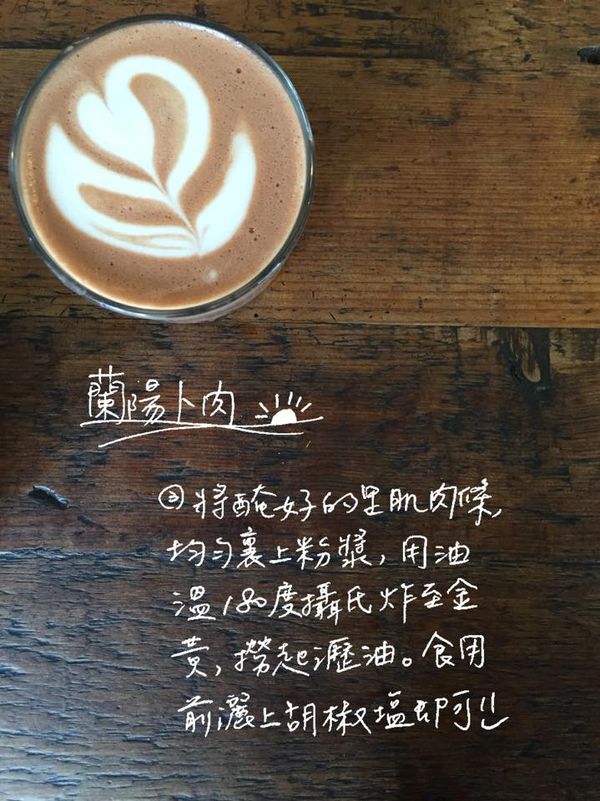 蘭陽卜肉
③將醃好的里肌肉條,
均勻裹上粉漿,用油
溫180度攝氏炸至金
黃,撈起瀝油。食用
前灑上胡椒塩即可!!